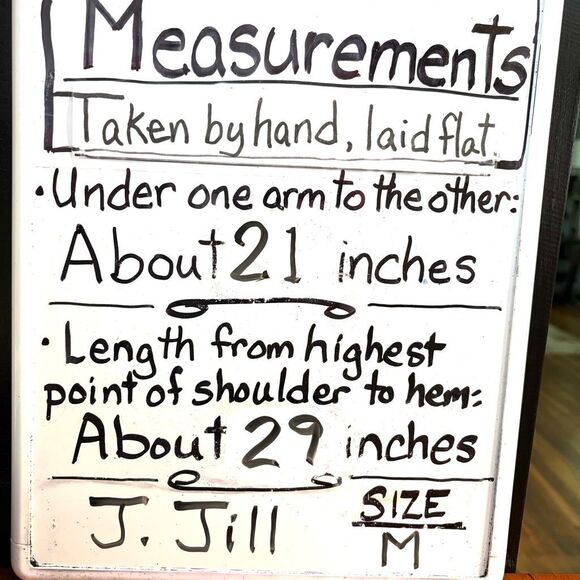 Measurements
Taken by hand, laid flat.
• Under one arm to the other:
About 21 inches
• Length from highest
point of shoulder to hem:
About 29 inches
J. Jill
SIZE
M